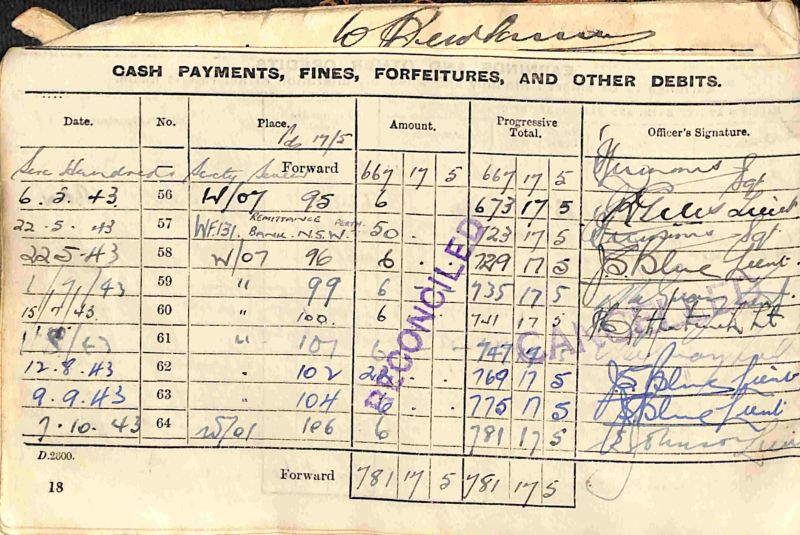 CASH PAYMENTS, FINES, FORFEITURES, AND OTHER DEBITS.
Date. No. Place. Amount. Progressive Total. Officer's Signature.
17/5
Six Hundred & Sixty Seven Forward 667 17 5 667 17 5 Sgt
6.5.43 56 W/07 95 6 . . 673 17 5 Lieut
22-5-43 57 WF131. REMITTANCE PERTH BANK. N.S.W. 50 . . 723 17 5 Sgt
22.5.43 58 W/07 96 6 . . 729 17 5 J.S. Blue Lieut.
1/7/43 59 " 99 6 . . 735 17 5
15/7/43 60 " 100. 6 . . 741 17 5 Lt
61 " 101 6 747 17 5
12.8.43 62 " 102 22 . . 769 17 5 J.S. Blue Lieut
9.9.43 63 " 104 6 . . 775 17 5 J.S. Blue Lieut
7.10.43 64 106 6 781 17 5 Johnson Lieut
RECONCILED
CANCELLED
D.2600.
Forward 781 17 5 781 17 5
18